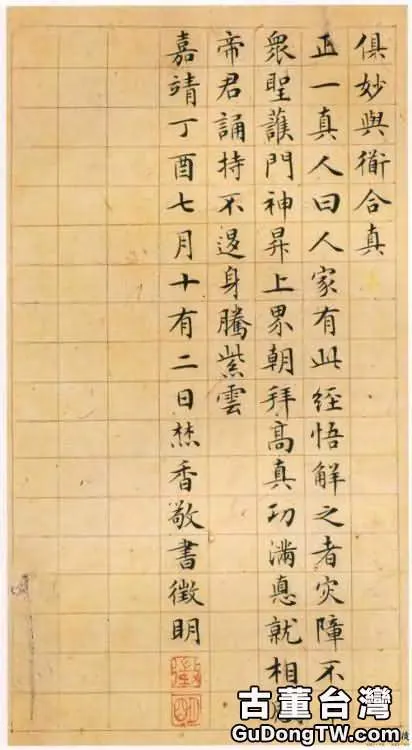 俱妙與衜合真
正一真人曰人家有此經悟解之者灾障不
衆聖護門神昇上界朝拜高真功滿惪就相
帝君誦持不退身騰紫雲
嘉靖丁酉七月十有二日焚香敬書徵明
古董台灣
GuDongTW.com